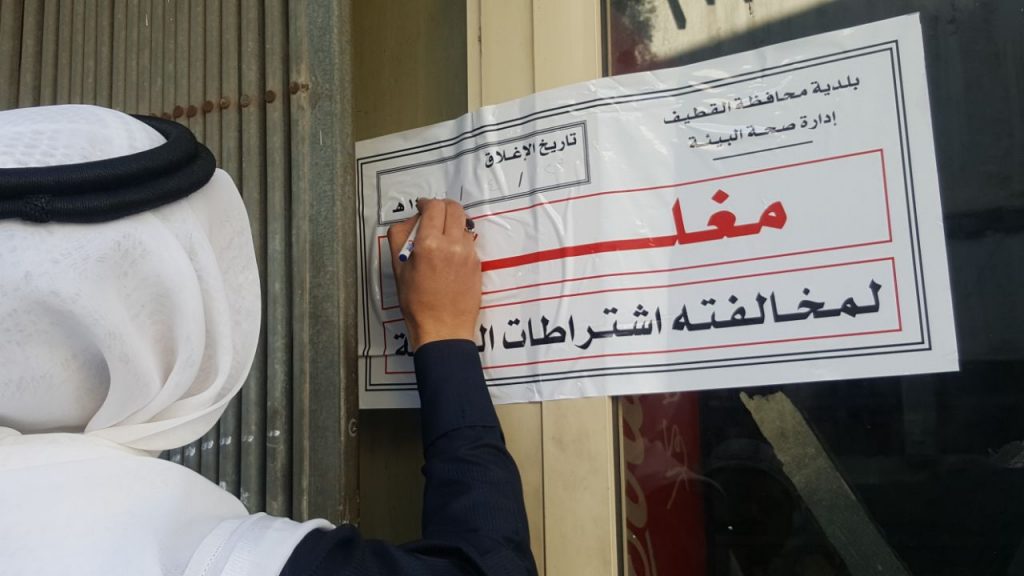 بلدية محافظة القطيف
إدارة صحة البيئة
تاريخ الإغلاق
/ / هـ
مغلـ
لمخالفته اشتراطات